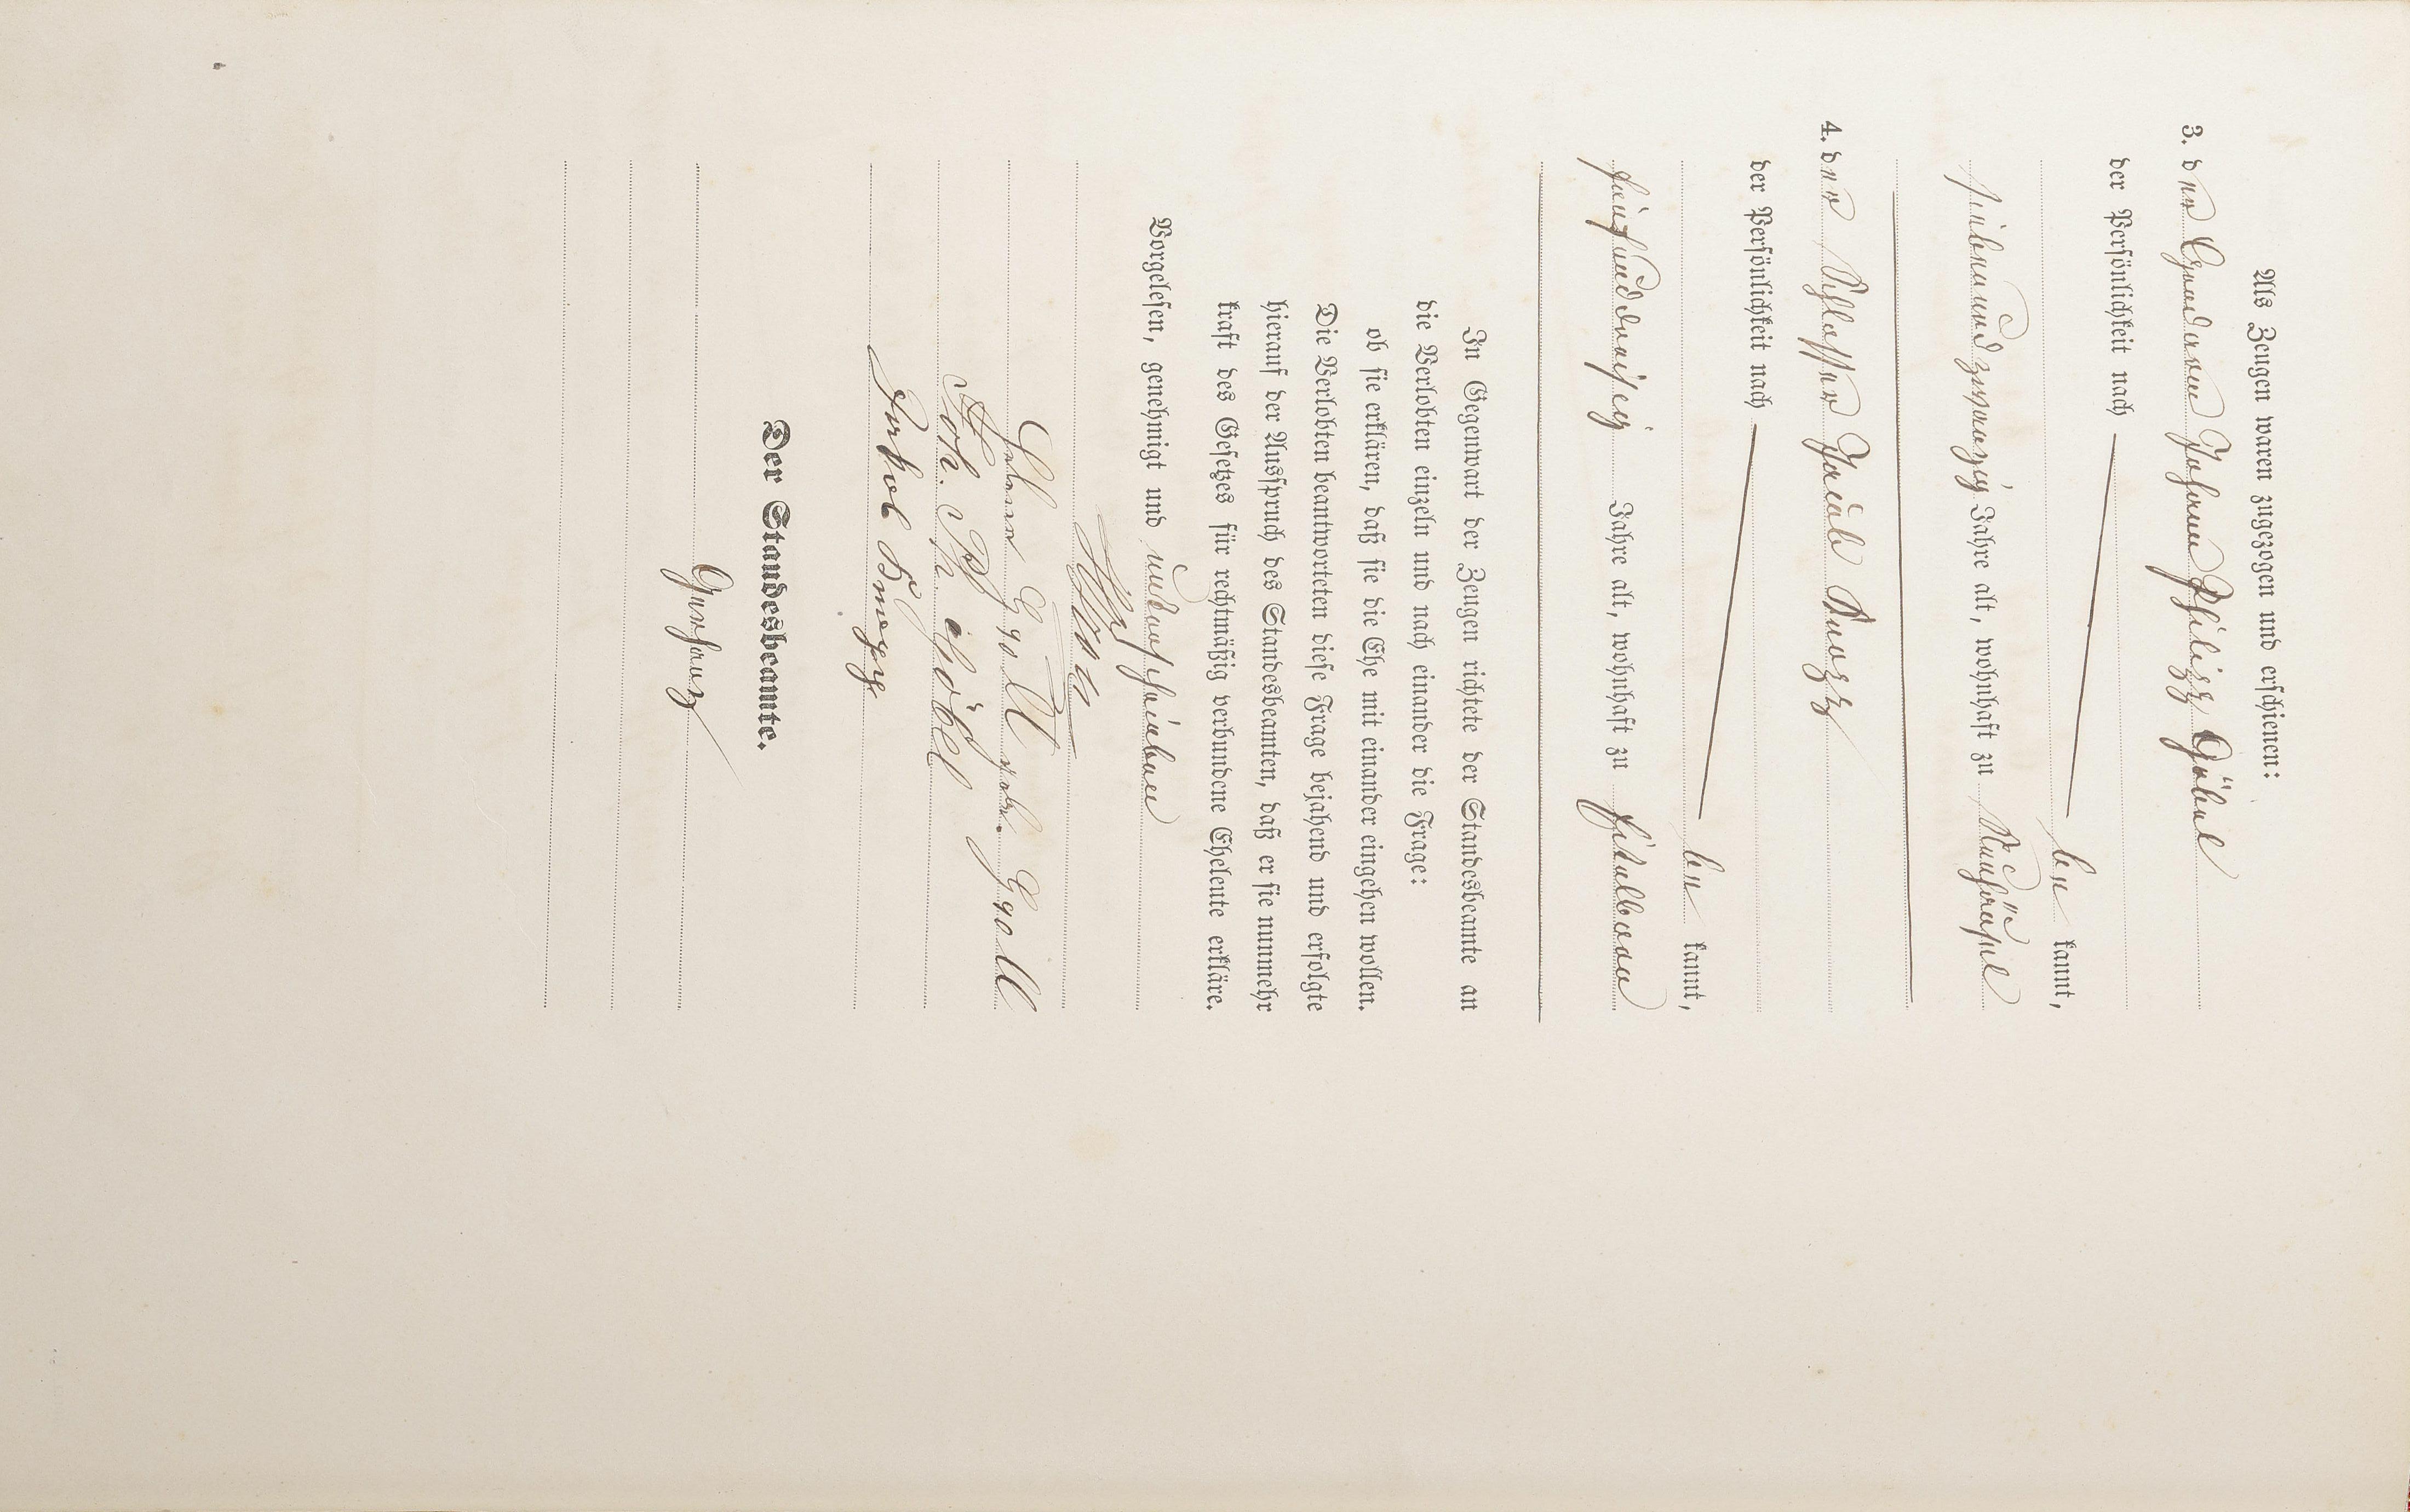 Als Zeugen waren zugezogen und erschienen:
3. der Gendarm Johann Philipp Göbel
der Persönlichkeit nach
be kannt,
siebenundzwanzig Jahre alt, wohnhaft zu
4. der Schlosser Jacob Knapp
der Persönlichkeit nach
be kannt,
fünfunddreißig Jahre alt, wohnhaft zu
In Gegenwart der Zeugen richtete der Standesbeamte an
die Verlobten einzeln und nach einander die Frage:
ob sie erklären, daß sie die Ehe mit einander eingehen wollen.
Die Verlobten beantworteten diese Frage bejahend und erfolgte
hierauf der Ausspruch des Standesbeamten, daß er sie nunmehr
kraft des Gesetzes für rechtmäßig verbundene Eheleute erkläre.
Vorgelesen, genehmigt und unterschrieben
Groll geb. Groll
Joh. Ph. Göbel
Jakob Knapp
Der Standesbeamte.